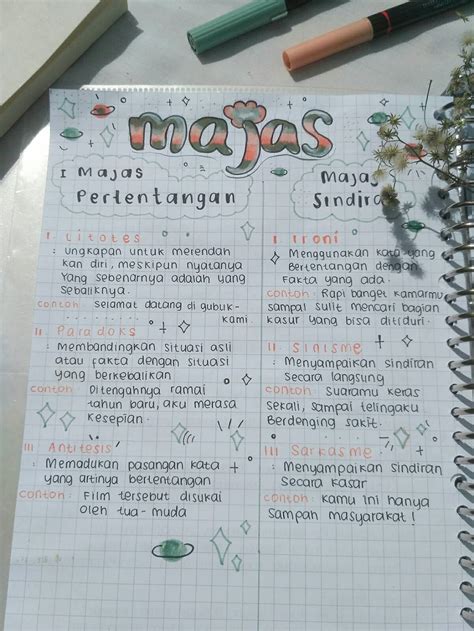 majas
I Majas
Pertentangan
I Litotes
: ungkapan untuk merendah
kan diri, meskipun nyatanya
yang sebenarnya adalah yang
sebaliknya.
contoh: Selamat datang di gubuk-
kami.
II Paradoks
: Membandingkan situasi asli
atau fakta dengan situasi
yang berkebalikan
contoh: Ditengahnya ramai
tahun baru, aku merasa
kesepian.
III Antitesis
: Memadukan pasangan kata
yang artinya bertentangan
contoh: Film tersebut disukai
oleh tua-muda
Majas
Sindira
I Ironi
: Menggunakan kata yang
Bertentangan dengan
Fakta yang ada.
contoh: Rapi banget kamarmu
sampai sulit mencari bagian
kasur yang bisa ditiduri.
II Sinisme
: Menyampaikan sindiran
Secara langsung
contoh: Suaramu keras
sekali, sampai telingaku
Berdenging sakit.
III Sarkasme
: Menyampaikan Sindiran
Secara kasar
contoh: kamu ini hanya
Sampah masyarakat!